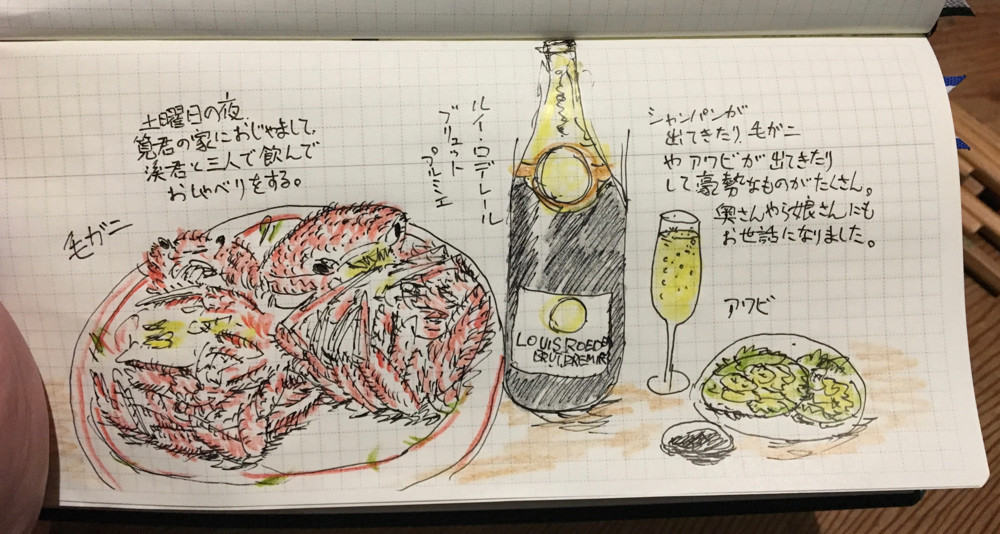 土曜日の夜、
筧君の家におじゃまして、
溪君と三人で飲んで
おしゃべりをする。
毛ガニ
ルイ・ロデレール
ブリュット
プルミエ
LOUIS ROEDE
BRUT PREMIER
シャンパンが
出てきたり、毛ガニ
やアワビが出てきたり
して豪勢なものがたくさん。
奥さんやら娘さんにも
お世話になりました。
アワビ